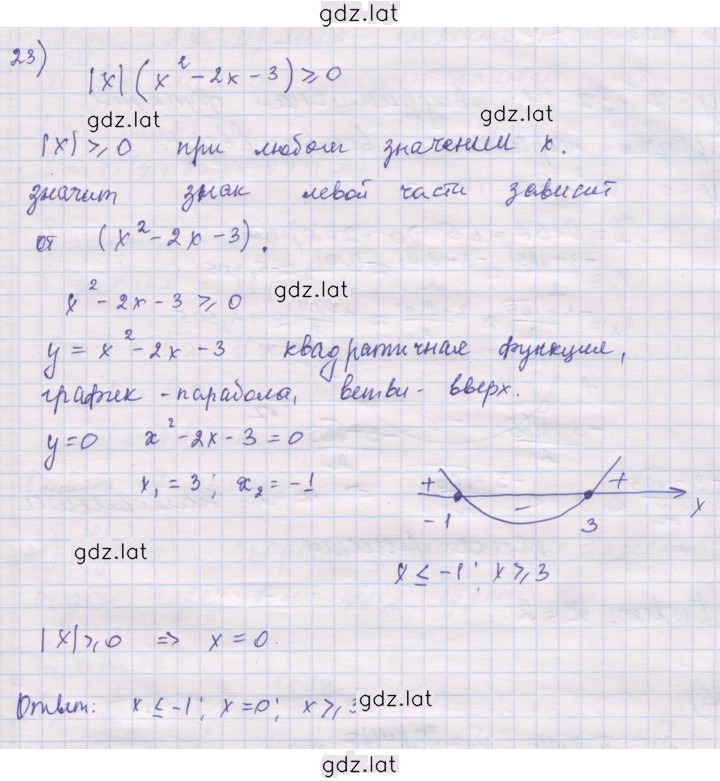 gdz.lat
23)
|x| (x² - 2x - 3) ⩾ 0
gdz.lat
gdz.lat
|x| ⩾ 0 при любом значении x.
значит знак левой части зависит
от (x² - 2x - 3).
gdz.lat
x² - 2x - 3 ⩾ 0
y = x² - 2x - 3 квадратичная функция,
график - парабола, ветви - вверх.
y = 0 x² - 2x - 3 = 0
x₁ = 3; x₂ = -1
+ - +
-1 3 x
gdz.lat
x ≤ -1; x ⩾ 3
|x| ⩾ 0 => x = 0.
Ответ: x ≤ -1; x = 0; x ⩾ 3
gdz.lat
gdz.lat